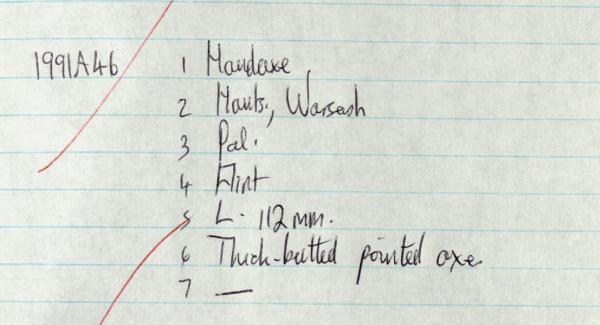 1991A46 1 Handaxe
2 Hants., Warsash
3 Pal.
4 Flint
5 L. 112mm.
6 Thick-butted pointed axe
7 —